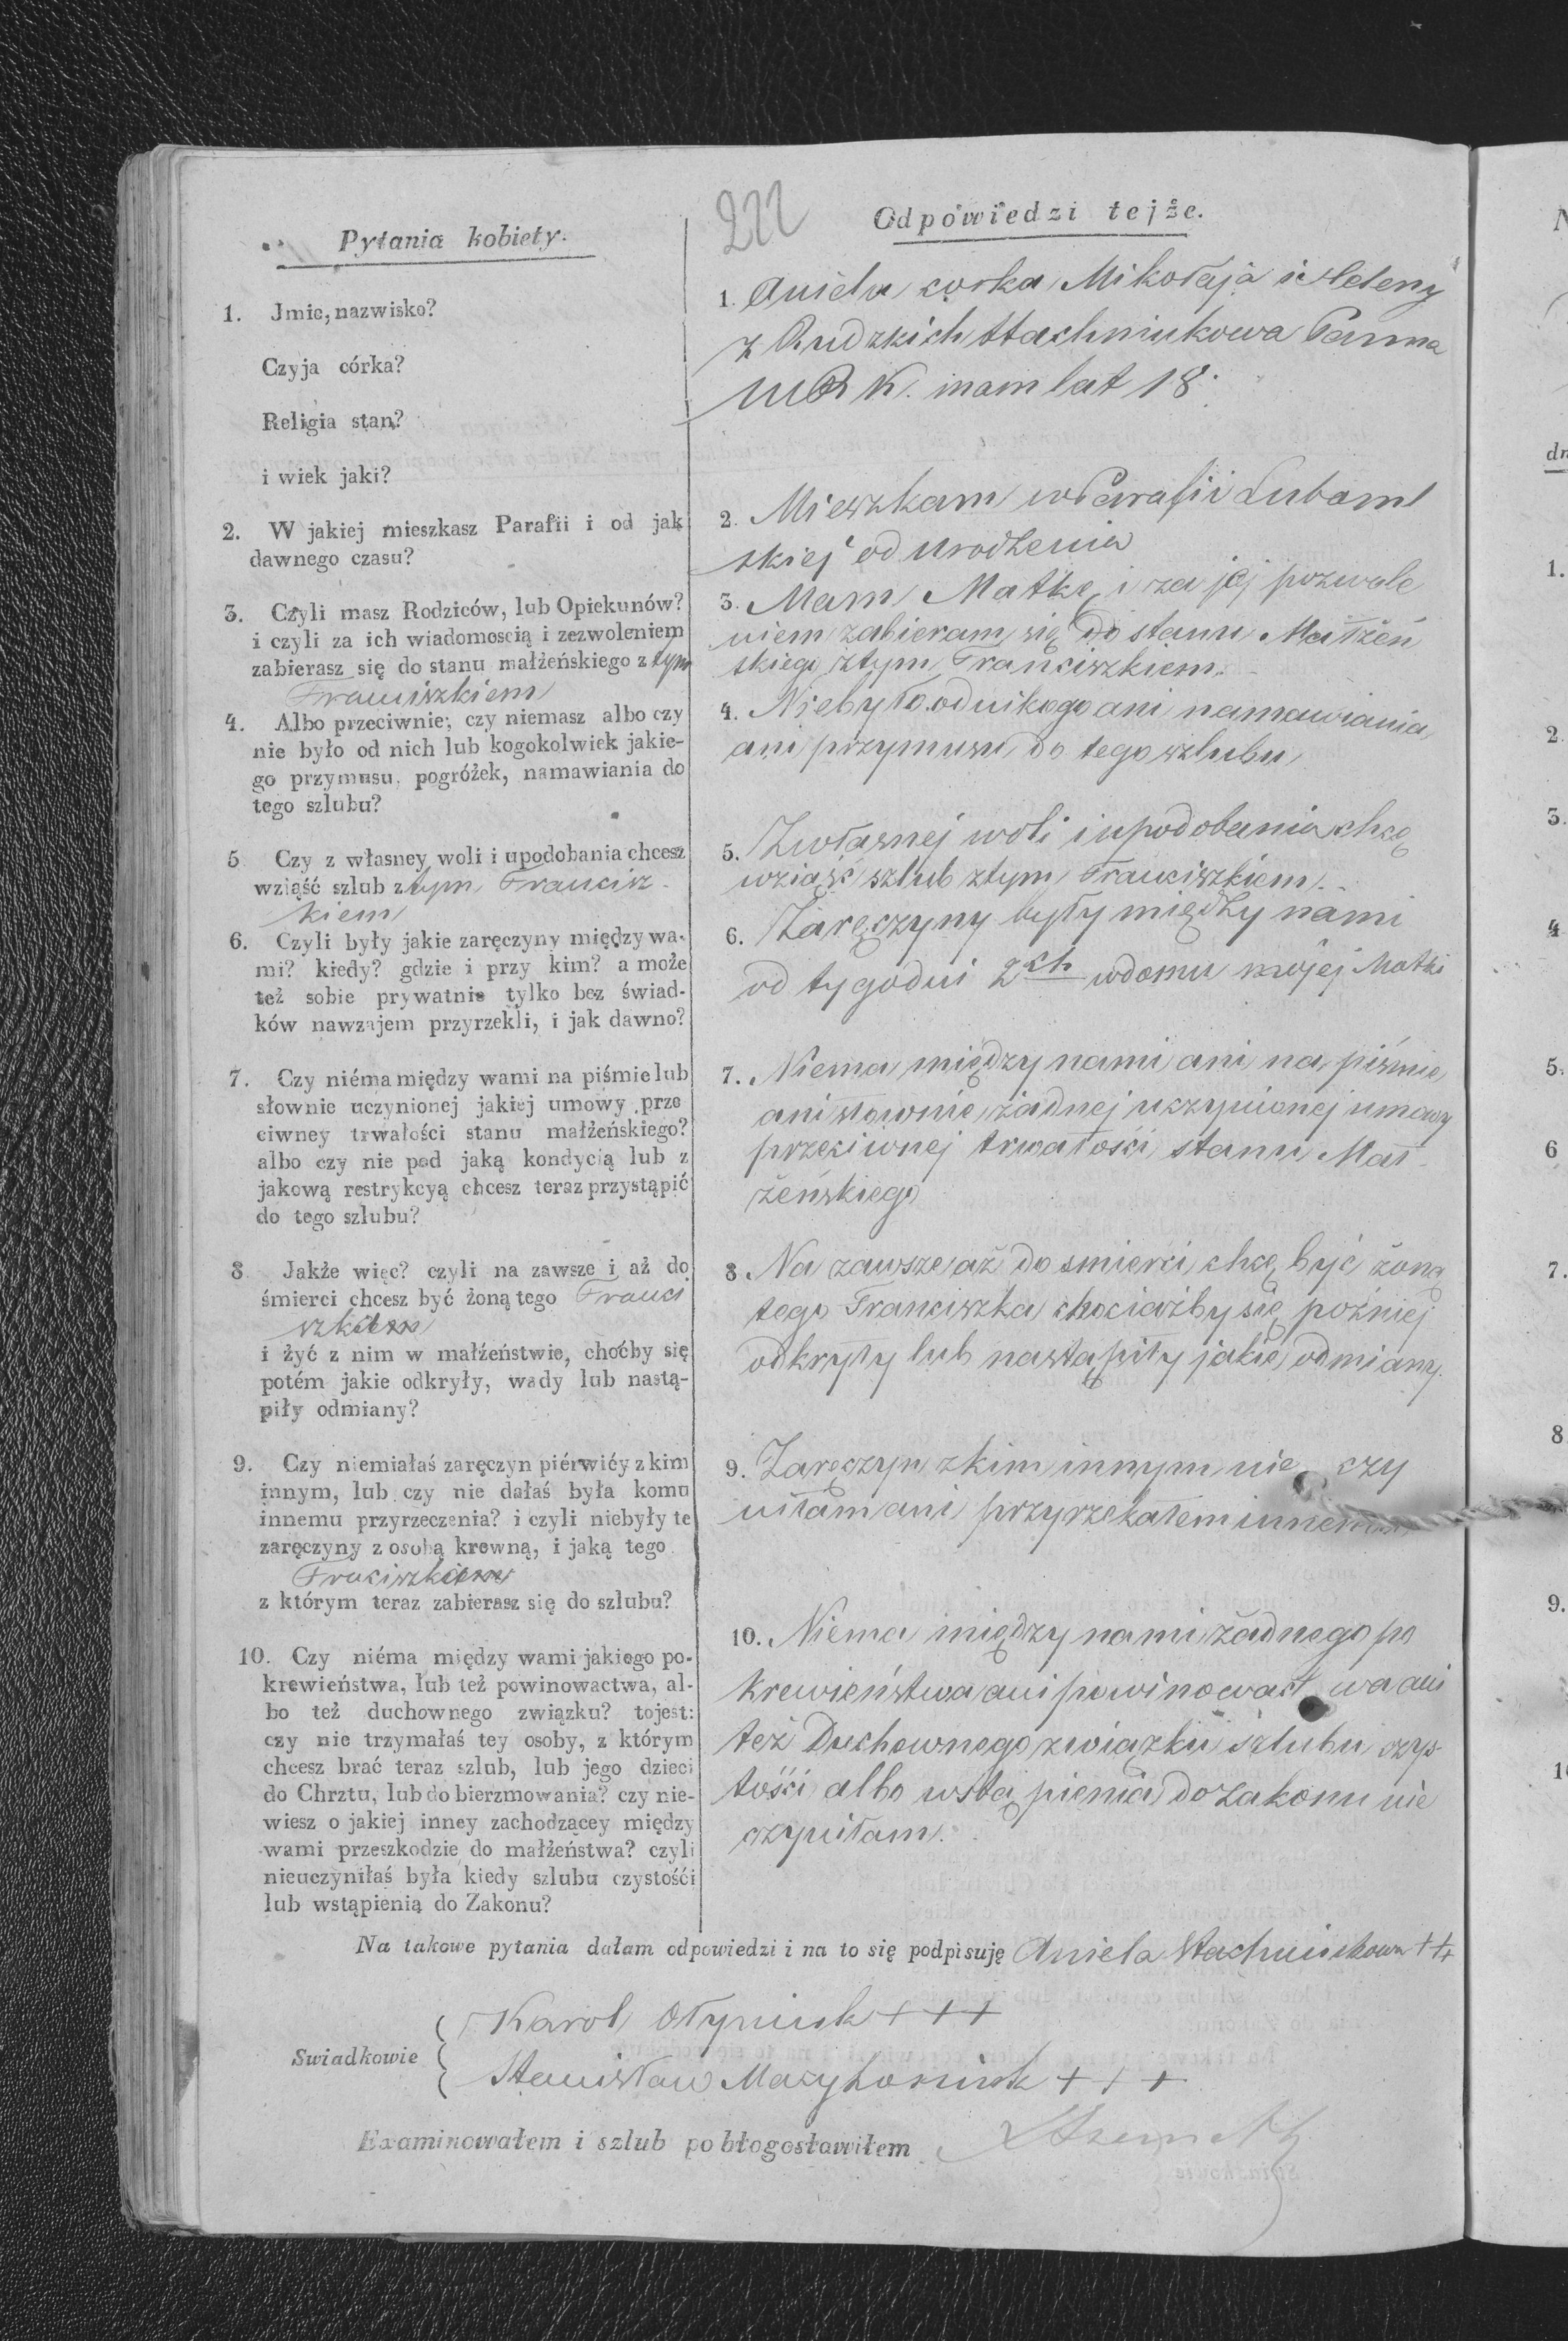 222
Pytania kobiety.
1. Jmie, nazwisko?
Czyja córka?
Religia stan?
i wiek jaki?
2. W jakiej mieszkasz Parafii i od jak
dawnego czasu?
3. Czyli masz Rodziców, lub Opiekunów?
i czyli za ich wiadomoscią i zezwoleniem
zabierasz się do stanu małżeńskiego z tym
Franciszkiem
4. Albo przeciwnie; czy niemasz albo czy
nie było od nich lub kogokolwiek jakie-
go przymusu, pogróżek, namawiania do
tego szlubu?
5 Czy z własney woli i upodobania chcesz
wziąść szlub z tym Francisz-
kiem
6. Czyli były jakie zaręczyny między wa-
mi? kiedy? gdzie i przy kim? a może
też sobie prywatnie tylko bez świad-
ków nawzajem przyrzekli, i jak dawno?
7. Czy niéma między wami na piśmie lub
słownie uczynionej jakiej umowy prze
ciwney trwałości stanu małżeńskiego?
albo czy nie pod jaką kondycią lub z
jakową restrykcyą chcesz teraz przystąpić
do tego szlubu?
8 Jakże więc? czyli na zawsze i aż do
śmierci chcesz być żoną tego Franci
szkiem
i żyć z nim w małżeństwie, choćby się
potém jakie odkryły, wady lub nastą-
piły odmiany?
9. Czy niemiałaś zaręczyn piérwićy z kim
innym, lub czy nie dałaś była komu
innemu przyrzeczenia? i czyli niebyły te
zaręczyny z osobą krewną, i jaką tego
Franciszkiem
z którym teraz zabierasz się do szlubu?
10. Czy niéma między wami jakiego po-
krewieństwa, lub też powinowactwa, al-
bo też duchownego związku? tojest:
czy nie trzymałaś tey osoby, z którym
chcesz brać teraz szlub, lub jego dzieci
do Chrztu, lub do bierzmowania? czy nie-
wiesz o jakiej inney zachodzącey między
wami przeszkodzie do małżeństwa? czyli
nieuczyniłaś była kiedy szlubu czystości
lub wstąpienią do Zakonu?
Odpówiedzi tejże.
1. Aniela corka Mikołaja i Heleny
z Rudzkich Stachniukowa Panna
W R K. mam lat 18
2. Mieszkam w Parafii Luboml
skiej od urodzenia
3. Mam Matkę i za jej pozwole
niem zabieram się do stanu Małżeń
skiego z tym Franciszkiem.
4. Niebyło od nikogo ani namawiania
ani przymusu do tego szlubu
5. Z własnej woli i upodobania chcę
wziąść szlub z tym Franciszkiem.
6. Zaręczyny były między nami
od tygodni 2ch w domu mojej Matki
7. Niema między nami ani na piśmie
ani słownie żadnej uczynionej umowy
przeciwnej trwałości stanu Mał-
żeńskiego
8 Na zawsze aż do smierci chcę być żoną
tego Franciszka chociażby się poźniej
odkryły lub nastąpiły jakie odmiany.
9. Zaręczyn z kim innym nie czy
niłam ani przyrzekałem innemu
10. Niema między nami żadnego po
krewieństwa ani powinowact wa ani
też Duchownego związku szlubu czys-
tości albo wstąpienia do Zakonu nie
czyniłam.
Na takowe pytania dałam odpowiedzi i na to się podpisuję Aniela Stachniukowa +++
Swiadkowie
Karol Ołyniuk +++
Stanisław +++
Examinowałem i szlub pobłogosławiłem
N
dn
1.
2.
3.
4
5.
6
7.
8
9.
10